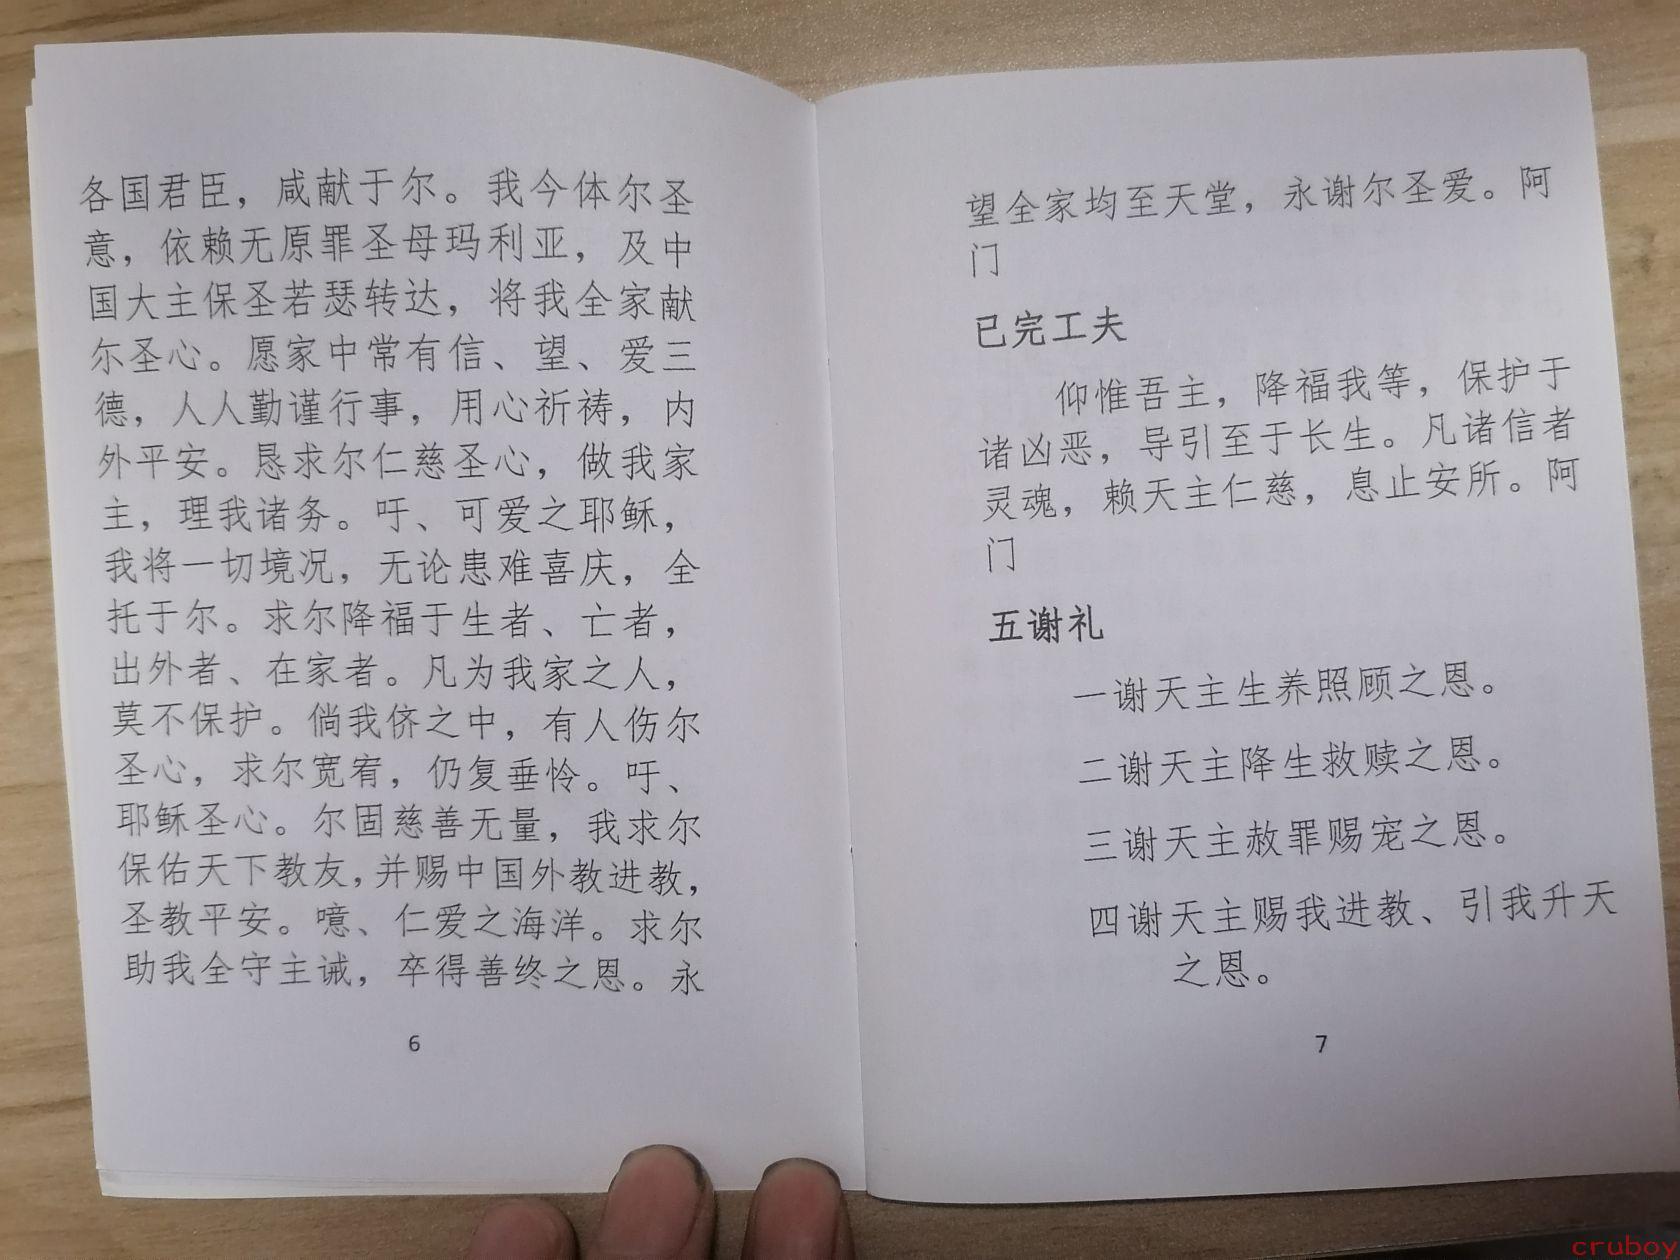 各国君臣，咸献于尔。我今体尔圣
意，依赖无原罪圣母玛利亚，及中
国大主保圣若瑟转达，将我全家献
尔圣心。愿家中常有信、望、爱三
德，人人勤谨行事，用心祈祷，内
外平安。恳求尔仁慈圣心，做我家
主，理我诸务。吁、可爱之耶稣，
我将一切境况，无论患难喜庆，全
托于尔。求尔降福于生者、亡者，
出外者、在家者。凡为我家之人，
莫不保护。倘我侪之中，有人伤尔
圣心，求尔宽宥，仍复垂怜。吁、
耶稣圣心。尔固慈善无量，我求尔
保佑天下教友，并赐中国外教进教，
圣教平安。噫、仁爱之海洋。求尔
助我全守主诫，卒得善终之恩。永
6
望全家均至天堂，永谢尔圣爱。阿
门
已完工夫
仰惟吾主，降福我等，保护于
诸凶恶，导引至于长生。凡诸信者
灵魂，赖天主仁慈，息止安所。阿
门
五谢礼
一谢天主生养照顾之恩。
二谢天主降生救赎之恩。
三谢天主赦罪赐宠之恩。
四谢天主赐我进教、引我升天
之恩。
7
cruboy